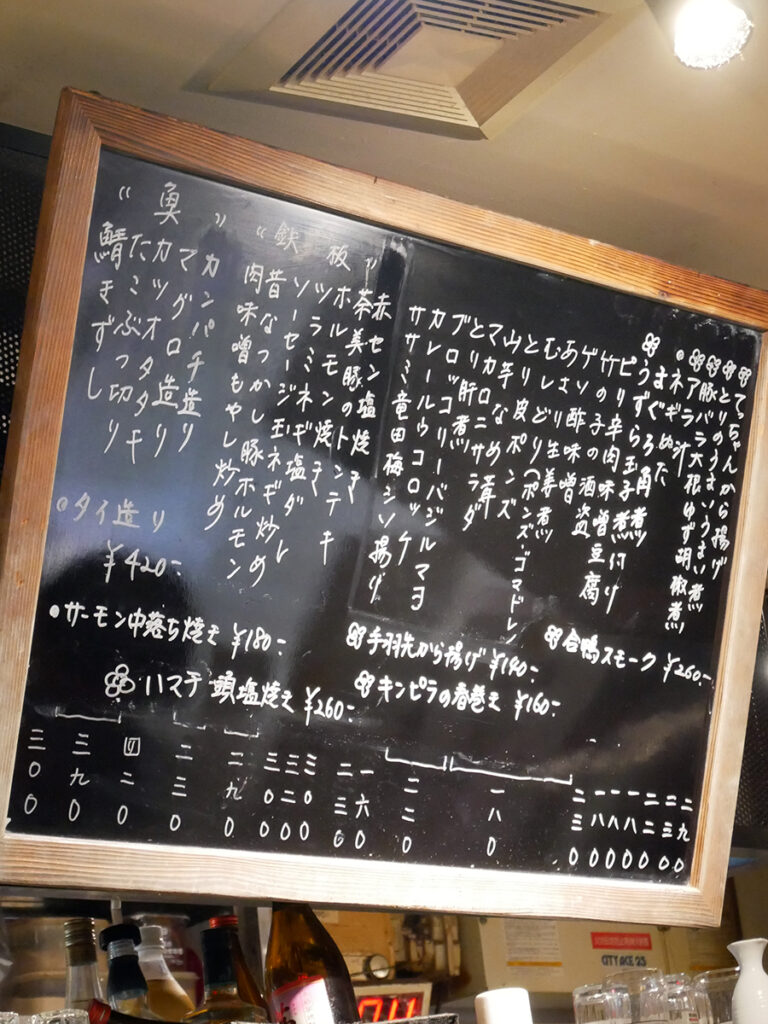 てっちゃんから揚げ
とりのうま煮
豚バラ大根ゆず胡椒煮
アラ汁
ネギぬた
まぐろ角煮
うずら玉子煮
ピリ辛肉味噌豆腐
竹の子の煮付け
ゲソ酢味噌
あさり酒盗
むし
とり皮ポンズ
山芋
マカロニサラダ
とり肝煮
ブロッコリーバジルマヨ
カレールウコロッケ
ササミ竜田梅シソ揚げ
《鉄板》
赤セン塩焼き
茶美豚のトンテキ
ホルモン焼き
ツラミネギ塩ダレ
ソーセージ玉ネギ炒め
昔なつかし豚ホルモン
肉味噌もやし炒め
《魚》
カンパチ造り
マグロ造り
カツオタタキ
たこぶつ切り
鯖きずし
●タイ造り
¥420-
●サーモン中落ち焼き ¥180-
手羽先から揚げ ¥190-
合鴨スモーク ¥260-
ハマチ頭塩焼き ¥260-
キンピラの春巻き ¥160-
二九〇
二三〇
二二〇
一八〇
一八〇
一八〇
二三〇
一八〇
二二〇
一六〇
二三〇
三〇〇
三二〇
三〇〇
二九〇
二三〇
四二〇
三九〇
三〇〇
CITY ACE 23